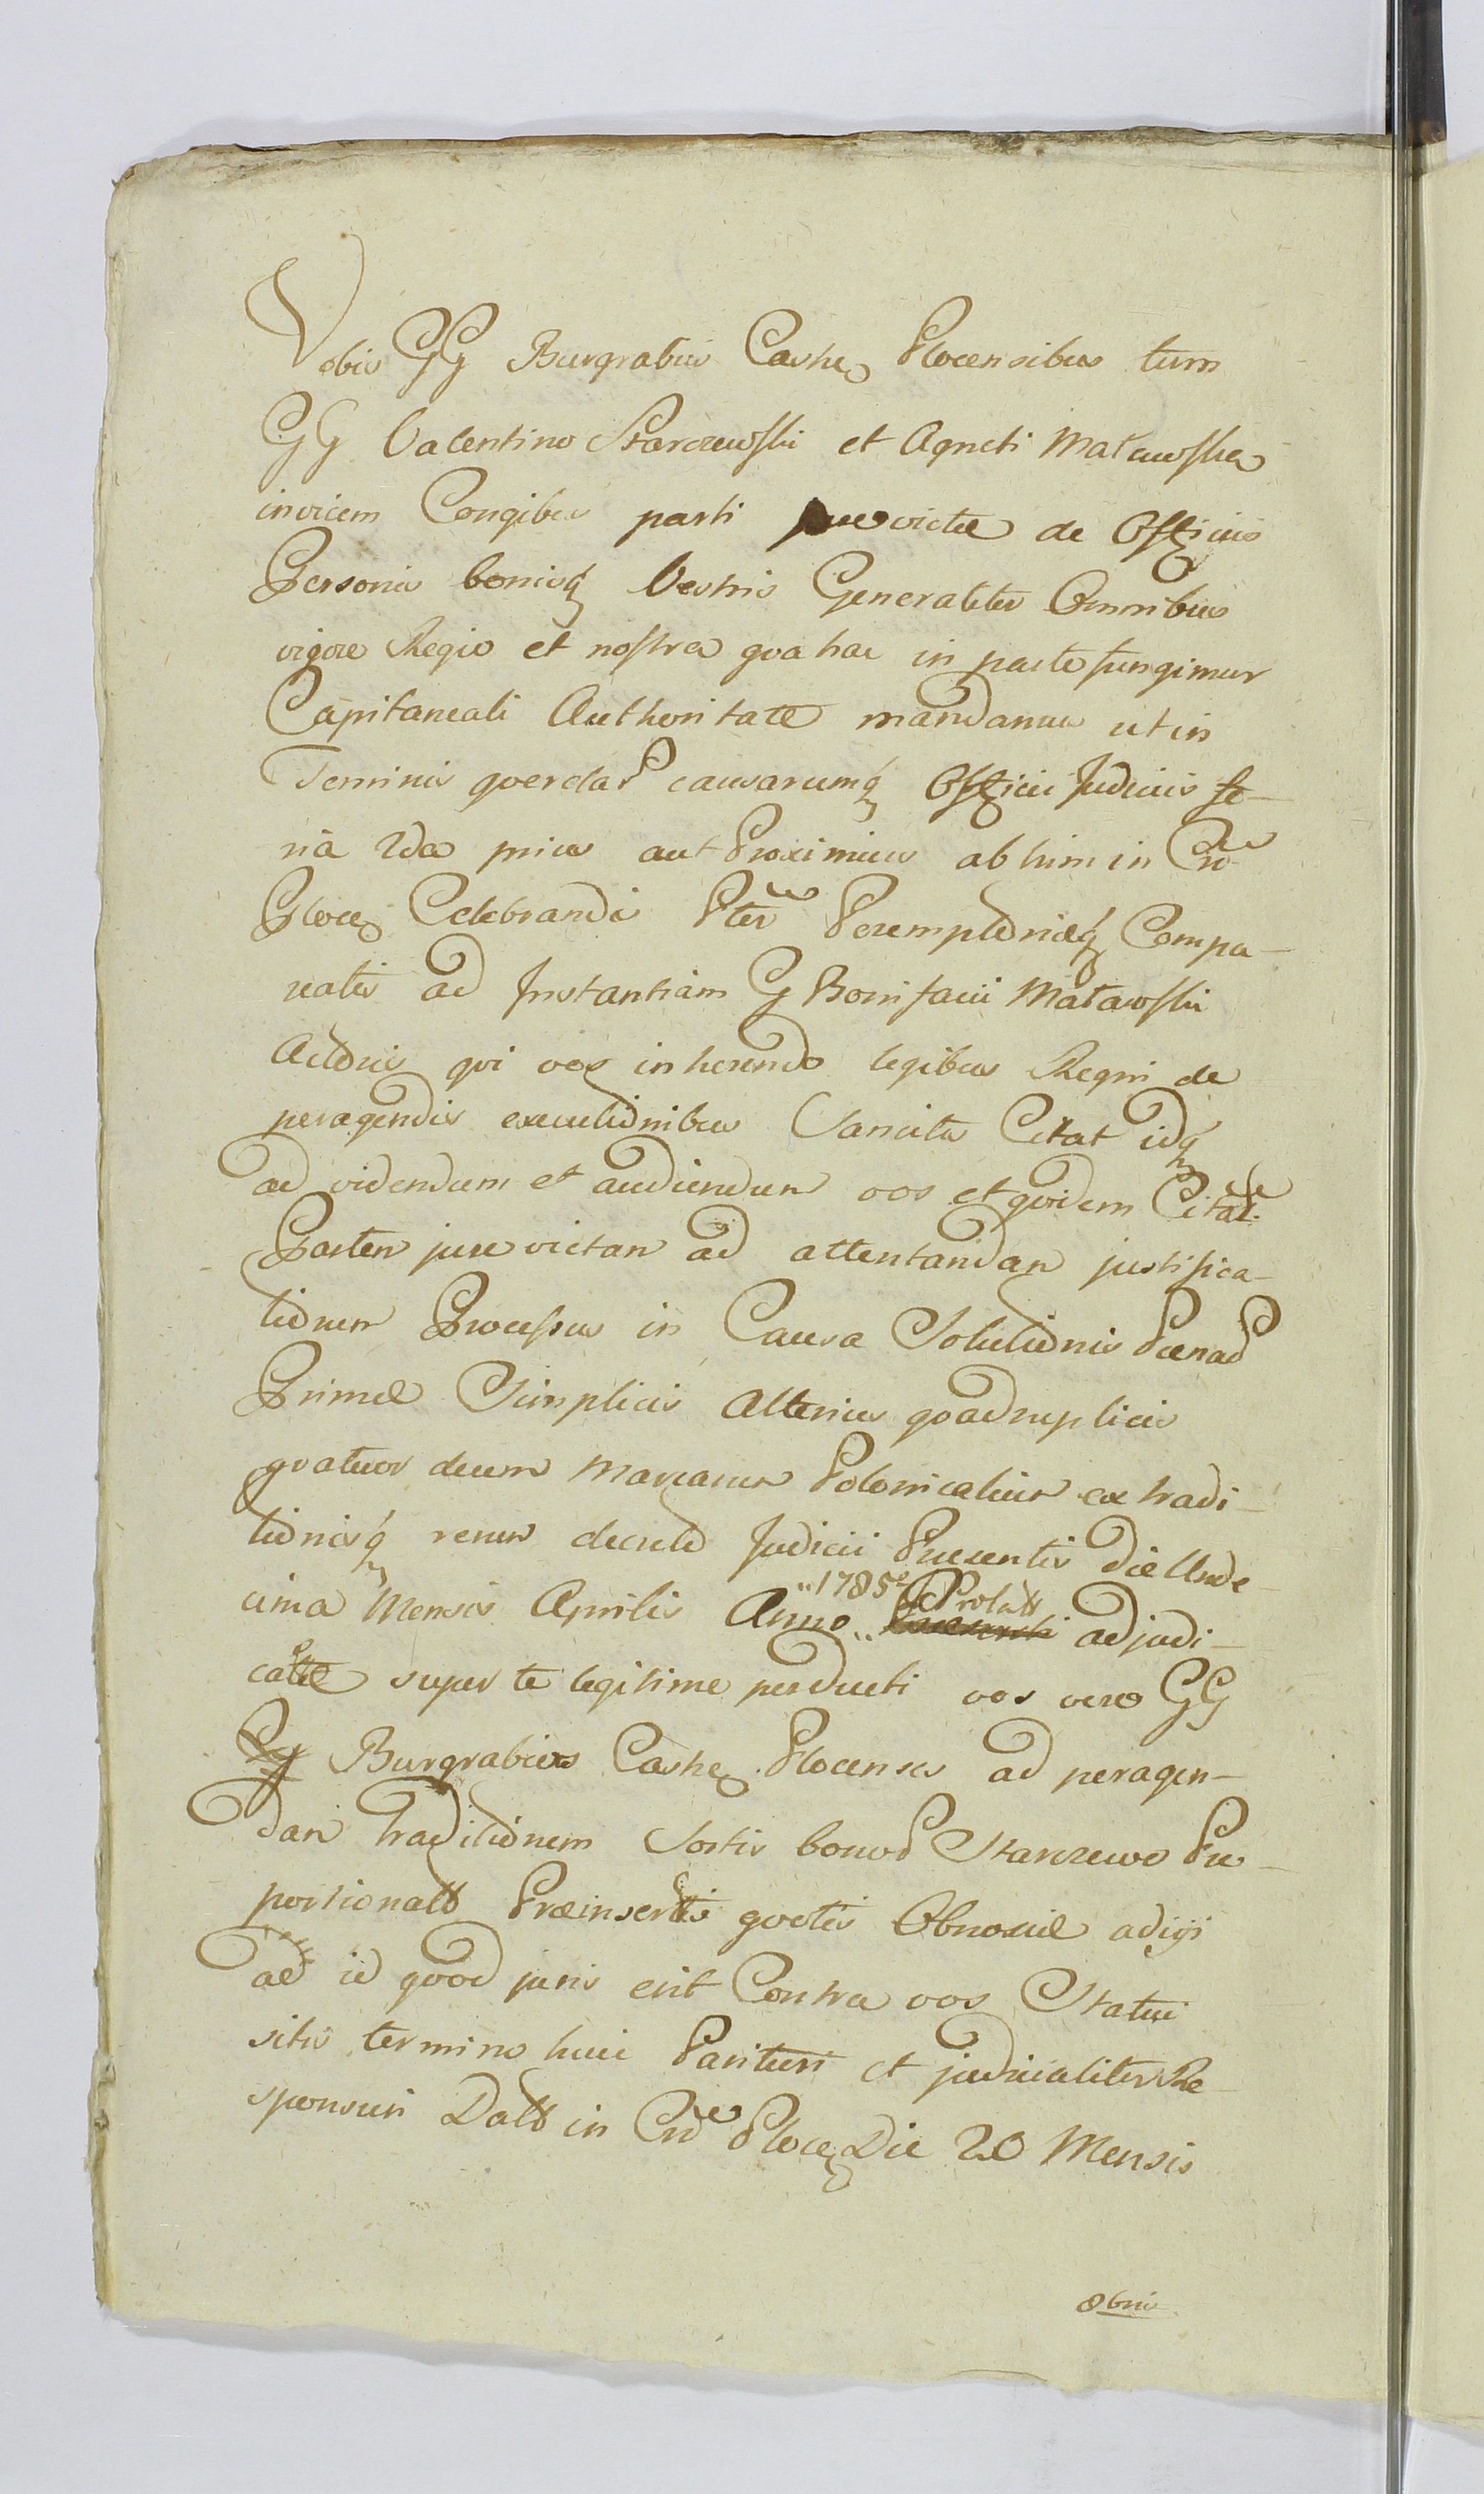 Vobis GG Burgrabiis Castrę Plocensibus tum
GG Valentino Starczewski et Agneti Matawska
invicem Congibus parti jure victæ de Officiis
Personis bonisq Vestris Generaliter Omnibus
vigore Regia et nostra qva hac in parte fungimur
Capitaneali Authoritate mandamus ut in
Terminis qverelar causarumq Officii Judiciis fe-
ria 2da prius aut Proximius ab hinc in Cro
Plocę Celebrandis Pter Peremptorieq Compa-
reatis ad Instantiam G Bonifacii Matawski
Actoris qvi vos inherendo legibus Regni de
peragendis executionibus Sancitis Citat idq
ad videndum et audiendum vos et qvidem Citat.
Partem jure victam ad attentandam justifica-
tionem Processus in Causa Solutionis Pænar
Primæ Simplicis Alterius qvadruplicis
qvatuor decem Marcarum Polonicalium extradi-
tionisq rerum decreto Judicii Præsentis die Unde-
cima Mensis Aprilis Anno "1785 Prolatt adjudi-
cattæ super te legitime perducti vos vero GG
Burgrabios Castrę Plocenses ad peragen-
dam traditionem Sortis bonor Starczewo Pro-
portionatt Præinsertis qvotis Obnoxiæ adigi
ad id qvod juris erit Contra vos Statui
sitis termino huic Parituri et judicialiter Re-
sponsuri Datt in Cro Plocę Die 20 Mensis
8bris